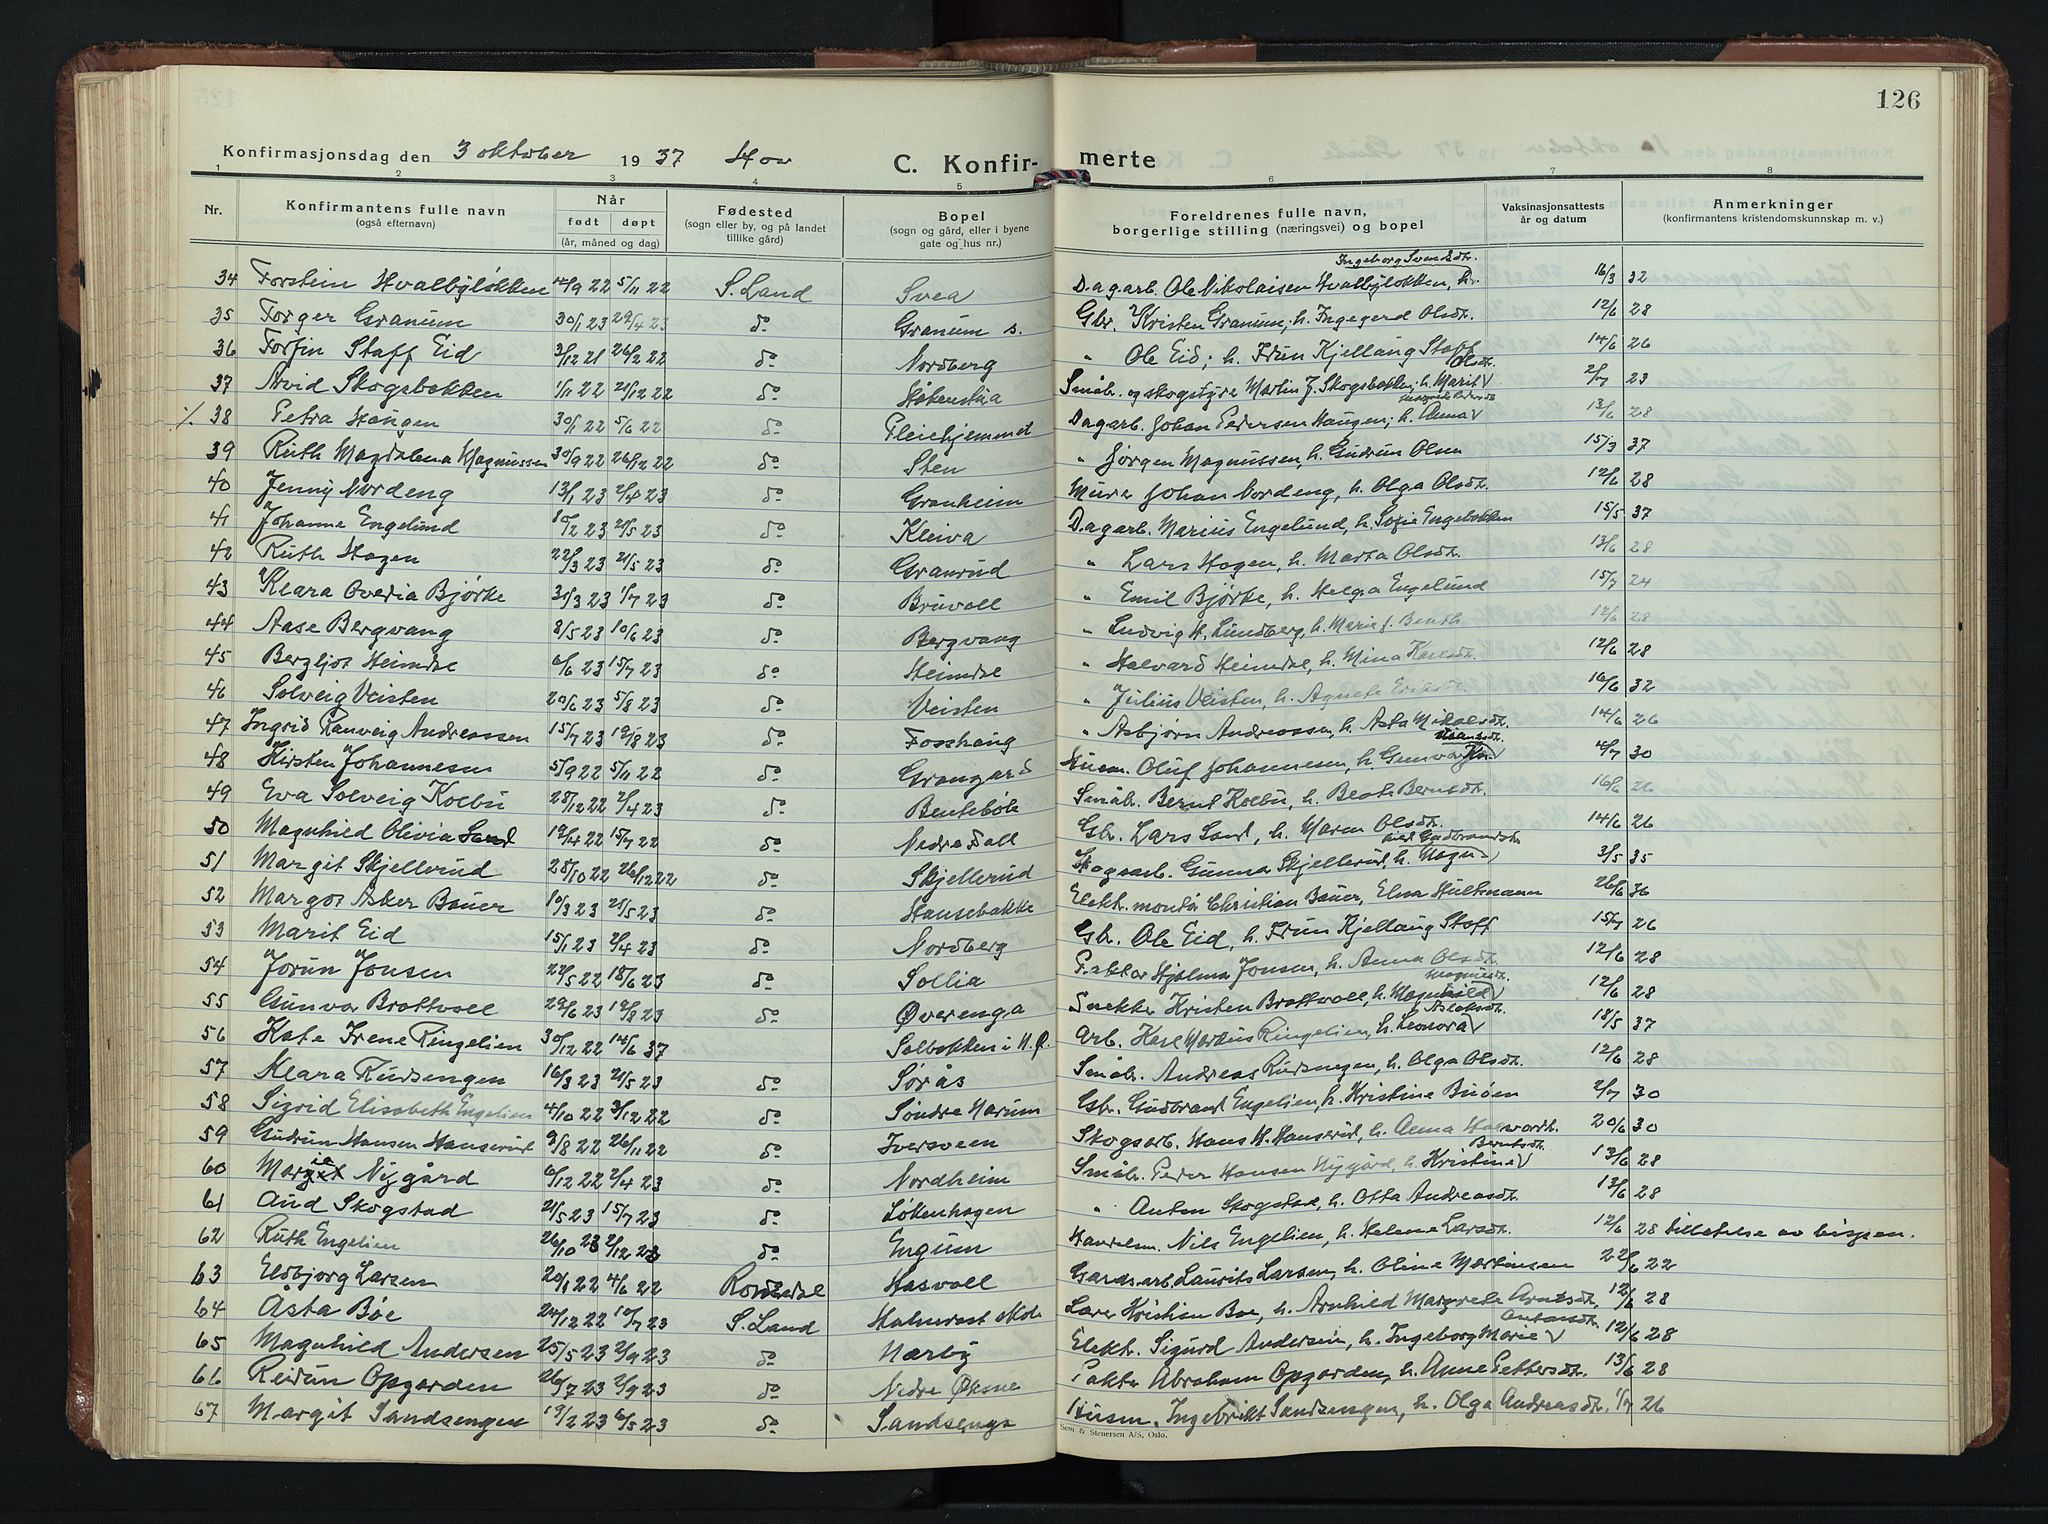 126
Konfirmasjonsdag den 3 oktober 1937 Hov C. Konfirmerte
1 2 3 4 5 6 7 8
Nr. Konfirmantens fulle navn (også efternavn) Når født døpt (år, måned og dag) Fødested (sogn eller by, og på landet tillike gård) Bopel (sogn og gård, eller i byene gate og hus nr.) Foreldrenes fulle navn, borgerlige stilling (næringsvei) og bopel Vaksinasjonsattests år og datum Anmerkninger (konfirmantens kristendomskunnskap m. v.)
34 Torstein Hvalbyløkken 4/9 22 5/11 22 S. Land Svea Dagarb. Ole Nikolaisen Hvalbyløkken, h. Ingeborg Svendsdtr. 16/3 32
35 Torger Granum 30/1 23 29/4 23 do Granum s. Gbr. Kristen Granum, h. Ingegerd Olsdtr. 12/6 28
36 Torfin Staff Eid 3/12 21 26/2 22 do Nordberg " Ole Eid; h. Frun Kjellaug Staff 14/6 26
37 Arvid Skogsbakken 1/11 22 21/12 22 do Småbr. og skogstyre Martin J. Skogsbakken, h. Marit Olsdtr. 2/7 23
38 Petra Haugen 30/1 22 5/6 22 do Pleiehjemmet Dagarb. Johan Pedersen Haugen; h. Anna 13/6 28
39 Ruth Magdalena Magnussen 30/9 22 26/12 22 do Sten " Jørgen Magnussen, h. Gudrun Olsen 15/3 37
40 Jenny Nordeng 13/1 23 2/4 23 do Granheim Murer Johan Nordeng, h. Olga Olsdtr. 12/6 28
41 Johanne Engelund 10/2 23 21/5 23 do Kleiva Dagarb. Marius Engelund, h. Sofie Engebakken 15/5 37
42 Ruth Hagen 22/3 23 21/5 23 do Granrud " Lars Hagen, h. Marta Olsdtr. 13/6 28
43 Klara Overia Bjørke 31/3 23 1/7 23 do Bruvoll " Emil Bjørke, h. Helga Engelund 15/7 24
44 Aase Bergvang 8/5 23 10/6 23 do Bergvang " Ludvig H. Lundberg, h. Marie J. 12/6 28
45 Bergljot Heimdal 6/6 23 15/7 23 do Heimdal " Halvard Heimdal, h. Mina Karlsdtr. 12/6 28
46 Solveig Veisten 20/6 23 5/8 23 do Veisten " Julius Veisten, h. Agnete Eriksdtr. 16/6 32
47 Ingrid Ranveig Andreassen 15/7 23 19/8 23 do Fosshaug " Asbjørn Andreassen, h. Asta Mikalsdtr. 14/6 26
48 Kirsten Johannesen 5/9 22 5/11 22 do Grangard Husm. Oluf Johannesen, h. Gunvor 4/7 30
49 Eva Solveig Kolbu 28/12 22 2/4 23 do Bentebøle Småbr. Bernt Kolbu, h. Beate Berntsdtr. 16/6 26
50 Magnhild Olivia Sand 19/4 22 15/7 22 do Nedre Dall Gbr. Lars Sand, h. Maren Olsdtr. 14/6 26
51 Margit Skjellerud 28/10 22 26/12 22 do Skjellerud Skogsarb. Gunnar Skjellerud, h. Magnhild Gudbrandsdtr. 3/5 35
52 Margot Asker Bauer 10/3 23 21/5 23 do Hansebakke Elektr. montør Christian Bauer, Elna Hultmann 26/6 36
53 Marit Eid 15/1 23 2/4 23 do Nordberg Gbr. Ole Eid, h. Frun Kjellaug Staff 15/7 26
54 Jorun Jonsen 22/5 22 18/6 23 do Sollia Pakter Hjalmar Jonsen, h. Anna Olsdtr. 12/6 28
55 Gunvor Brattvoll 29/6 23 19/8 23 do Øverenga Snekker Kristen Brattvoll, h. Magnhild Magnusdtr. 12/6 28
56 Kate Irene Ringelien 30/12 22 14/6 37 Solbakken i N.Ø. Arb. Karl Markus Ringelien, h. Leonora Aslaksdtr. 18/5 37
57 Klara Rudsengen 16/3 23 21/5 23 do Sørås Småbr. Andreas Rudsengen, h. Olga Olsdtr. 12/6 28
58 Sigrid Elisabeth Engelien 4/10 22 3/12 22 do Søndre Narum Gbr. Gudbrand Engelien, h. Kristine Buøen 2/7 30
59 Gudrun Hansen Hanserud 9/8 22 26/11 22 do Iversveen Skogsarb. Hans H. Hanserud, h. Anna Havardtr. 20/6 30
60 Margit ie Nygård 6/12 22 2/4 23 do Nordheim Småbr. Peder Hansen Nygård, h. Kristine Berntsdtr. 13/6 28
61 Aud Skogstad 21/5 23 15/7 23 do Løkenhagen " Anton Skogstad, h. Otta Andreasdtr. 13/6 28
62 Ruth Engelien 26/10 23 2/12 23 do Engum Handelsm. Nils Engelien, h. Helene Larsdtr. 12/6 28 tillatelse av bispen.
63 Eldbjørg Larsen 20/1 22 4/6 22 Hasvoll Gardsarb. Laurits Larsen, h. Oline Martinsen 22/6 22
64 Åsta Bøe 24/12 22 10/7 23 S. Land Lærer Kristian Bøe, h. Arnhild Margrete Arntsdtr. 12/6 28
65 Magnhild Andersen 25/5 23 2/9 23 do Nærby Elektr. Sigurd Andersen, h. Ingeborg Marie Antonsdtr. 12/6 28
66 Reidun Opgarden 26/7 23 2/9 23 do Nedre Øksne Pakter Abraham Opgarden, h. Anne Pettersdtr. 13/6 28
67 Margit Sandsengen 19/2 23 6/5 23 do Sandsenga Husm. Ingebrikt Sandsengen, h. Olga Andreasdtr. 1/7 26
Sem & Stenersen A/S, Oslo.